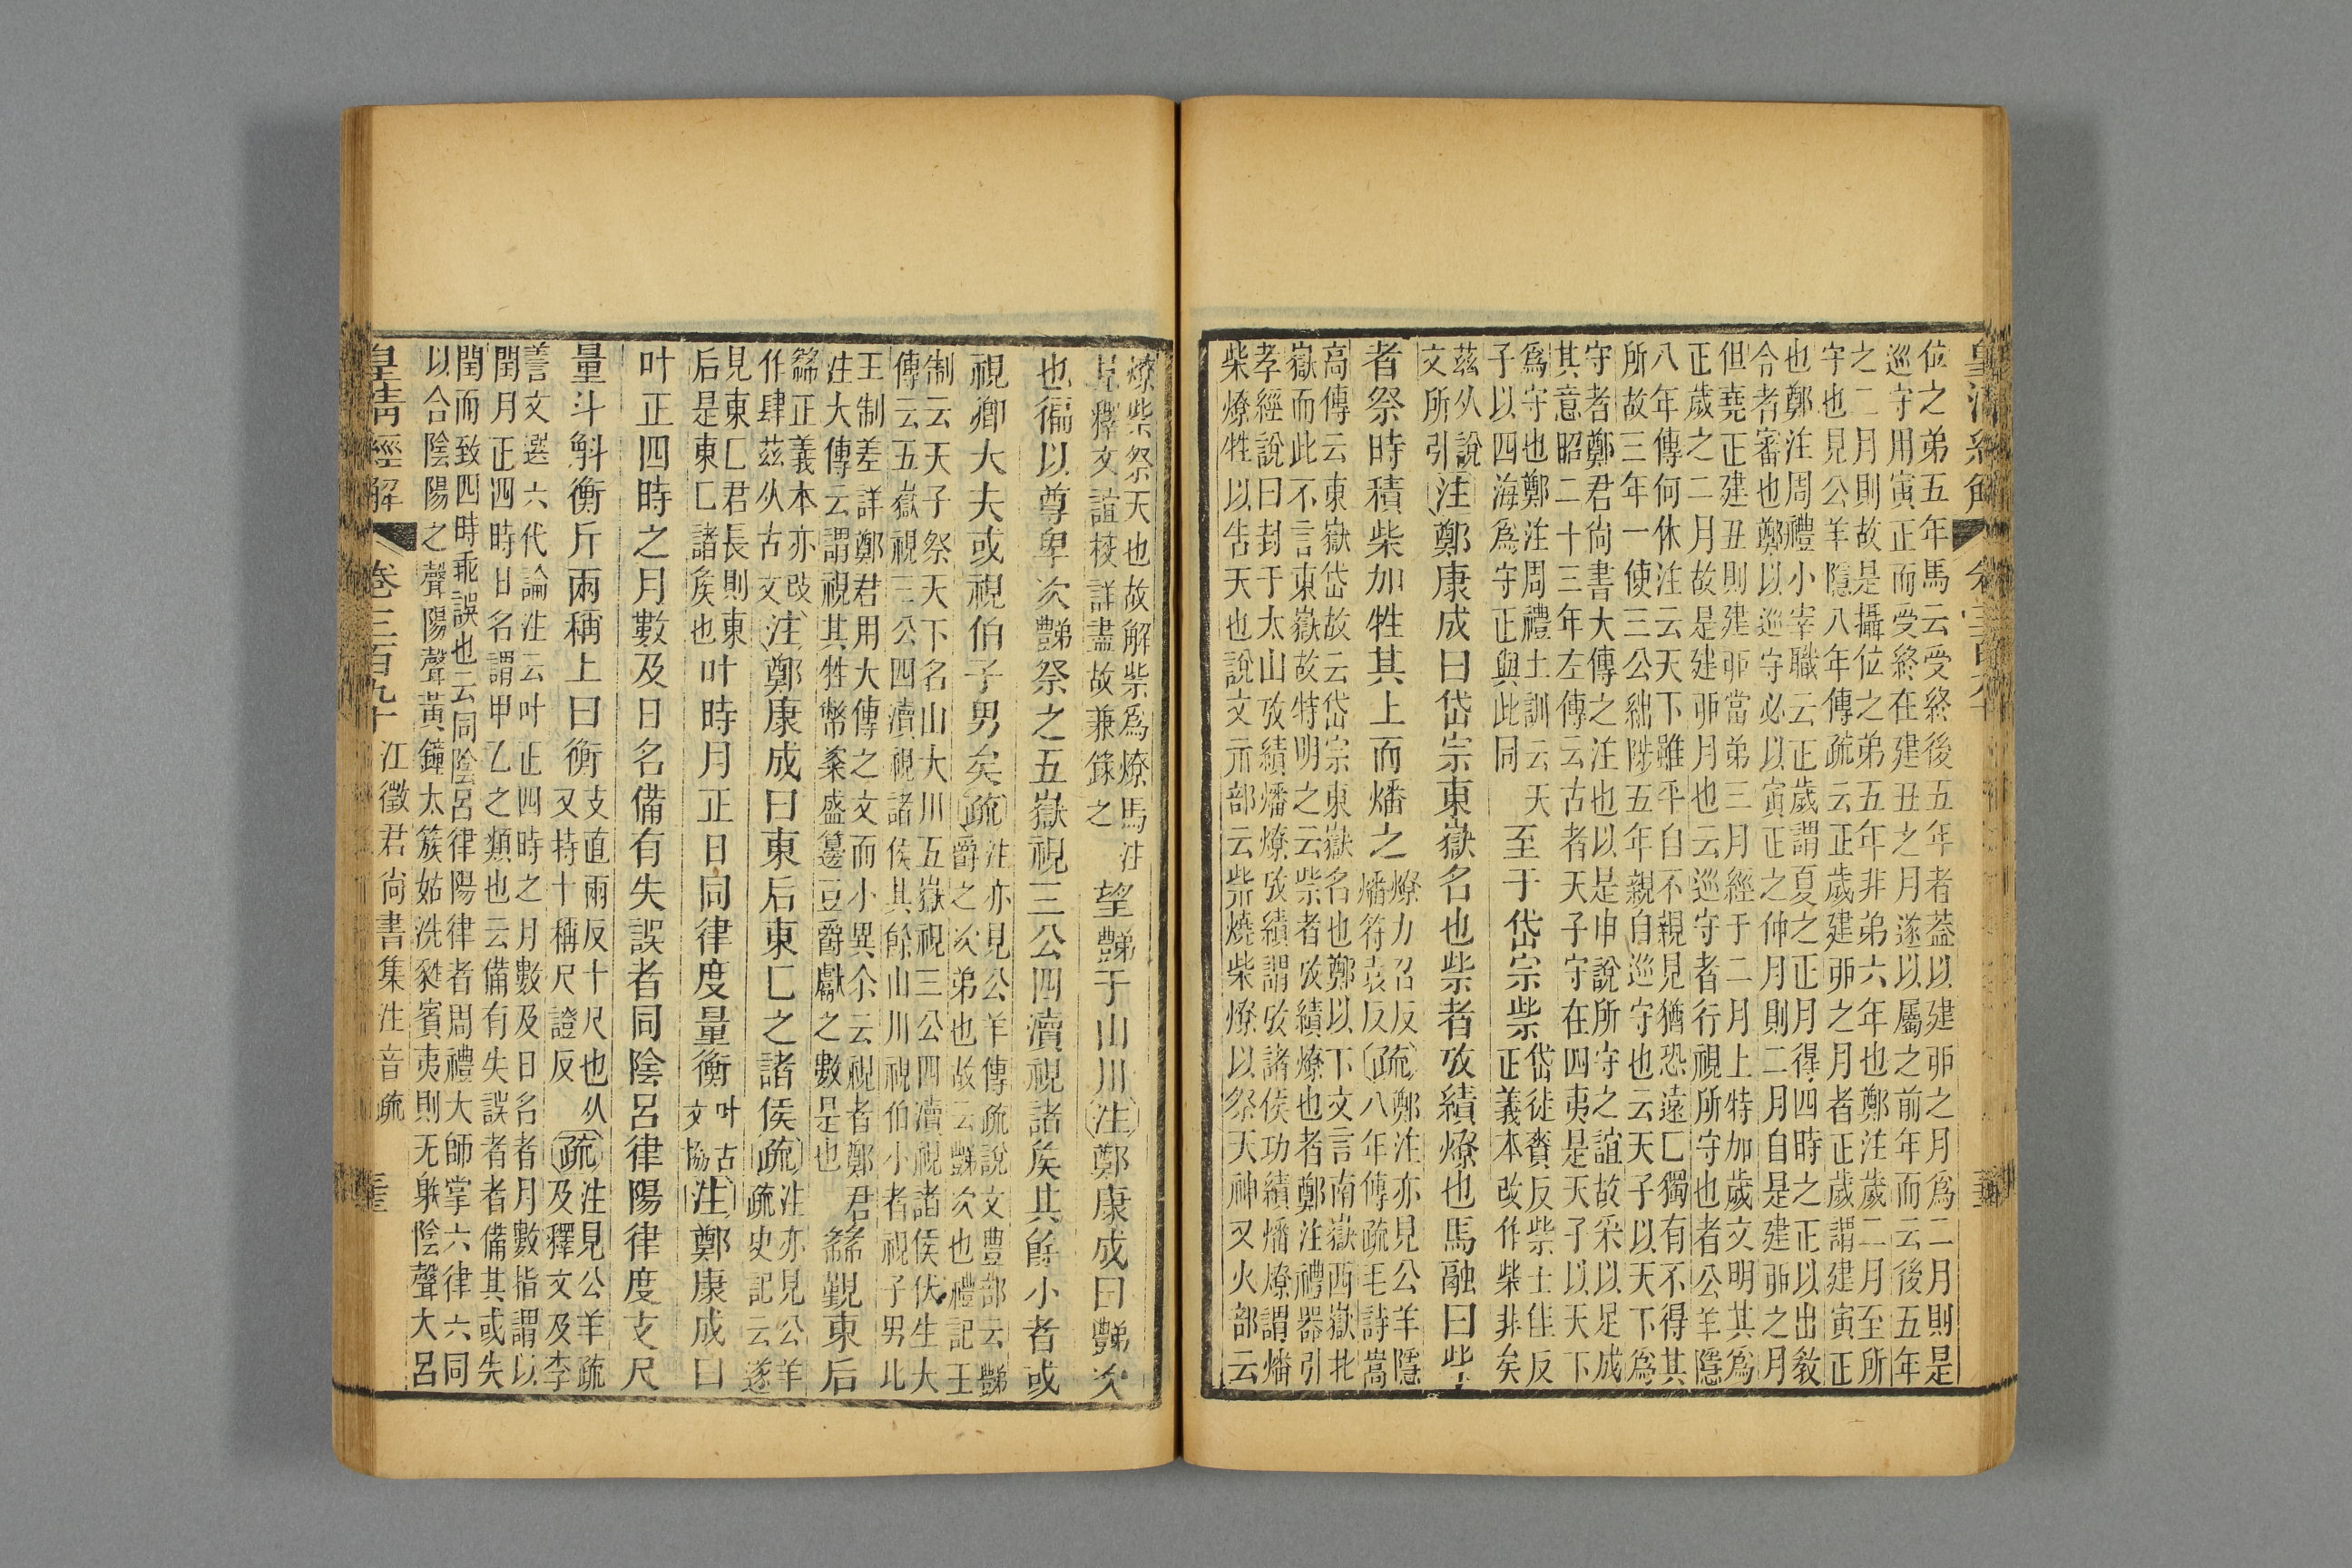 位之弟五年馬云受終後五年者蓋以建丣之月爲二月則是
巡守用寅正而受終在建丑之月遂以屬之前年而云後五年
之二月則故是攝位之弟五年非弟六年也鄭注歲二月至所
守也見公羊隱八年傳疏云正歲建丣之月者正歲謂建寅正
也鄭注周禮小宰職云正歲謂夏之正月得四時之正以出教
令者審也鄭以巡守必以寅正之仲月則二月自是建丣之月
但堯正建丑則建丣當弟三月經于二月上特加歲文明其爲
正歲之二月故是建丣月也云巡守者行視所守也者公羊隱
八年傳何休注云天下雖平自不親見猶恐遠匸獨有不得其
所故三年一使三公絀陟五年親自巡守也云天子以天下爲
守者鄭君尙書大傳之注也以是申說所守之誼故采以足成
其意昭二十三年左傳云古者天子守在四夷是天子以天下
爲守也鄭注周禮土訓云天
子以四海爲守正與此同
至于岱宗柴
岱徒賚反柴士佳反
正義本改作柴非矣
茲从說
文所引
注鄭康成曰岱宗東嶽名也柴者攷績燎也馬融曰柴
者祭時積柴加牲其上而燔之
燎力召反
燔符袁反
疏
鄭注亦見公羊隱
八年傳疏毛詩嵩
高傳云東嶽岱故云岱宗東嶽名也鄭以下文言南嶽西嶽北
嶽而此不言東嶽故特明之云柴者攷績燎也者鄭注禮器引
孝經說曰封于太山攷績燔燎攷績謂攷諸侯功績燔燎謂燔
柴燎牲以告天也說文示部云祡燒柴燎以祭天神又火部云
燎柴祭天也故解柴爲燎馬注
見釋文誼校詳盡故兼錄之
望豑于山川注鄭康成曰豑次
也徧以尊卑次豑祭之五嶽視三公四瀆視諸矦其餘小者或
視卿大夫或視伯子男矣疏
注亦見公羊傳疏說文豊部云豑
爵之次弟也故云豑次也禮記王
制云天子祭天下名山大川五嶽視三公四瀆視諸侯伏生大
傳云五嶽視三公四瀆視諸侯其餘山川視伯小者視子男此
王制差詳鄭君用大傳之文而小異尒云視者鄭君
注大傳云謂視其牲幣粢盛籩豆爵獻之數是也
覲東后
正義本亦改
作肆茲从古文
注鄭康成曰東后東匸之諸侯疏
注亦見公羊
疏史記云遂
見東匸君長則東
后是東匸諸矦也
叶時月正日同律度量衡
叶古
文協
注鄭康成曰
叶正四時之月數及日名備有失誤者同陰呂律陽律度丈尺
量斗斛衡斤兩稱上曰衡
支直兩反十尺也从
又持十稱尺證反
疏
注見公羊疏
及釋文及李
善文選六代論注云叶正四時之月數及日名者月數指謂以
閏月正四時日名謂甲乙之類也云備有失誤者者備其或失
閏而致四時乖誤也云同陰呂律陽律者周禮大師掌六律六同
以合陰陽之聲陽聲黃鐘太簇姑洗蕤賓夷則无射陰聲大呂
皇淸經解 卷三百九十 江徵君尙書集注音疏